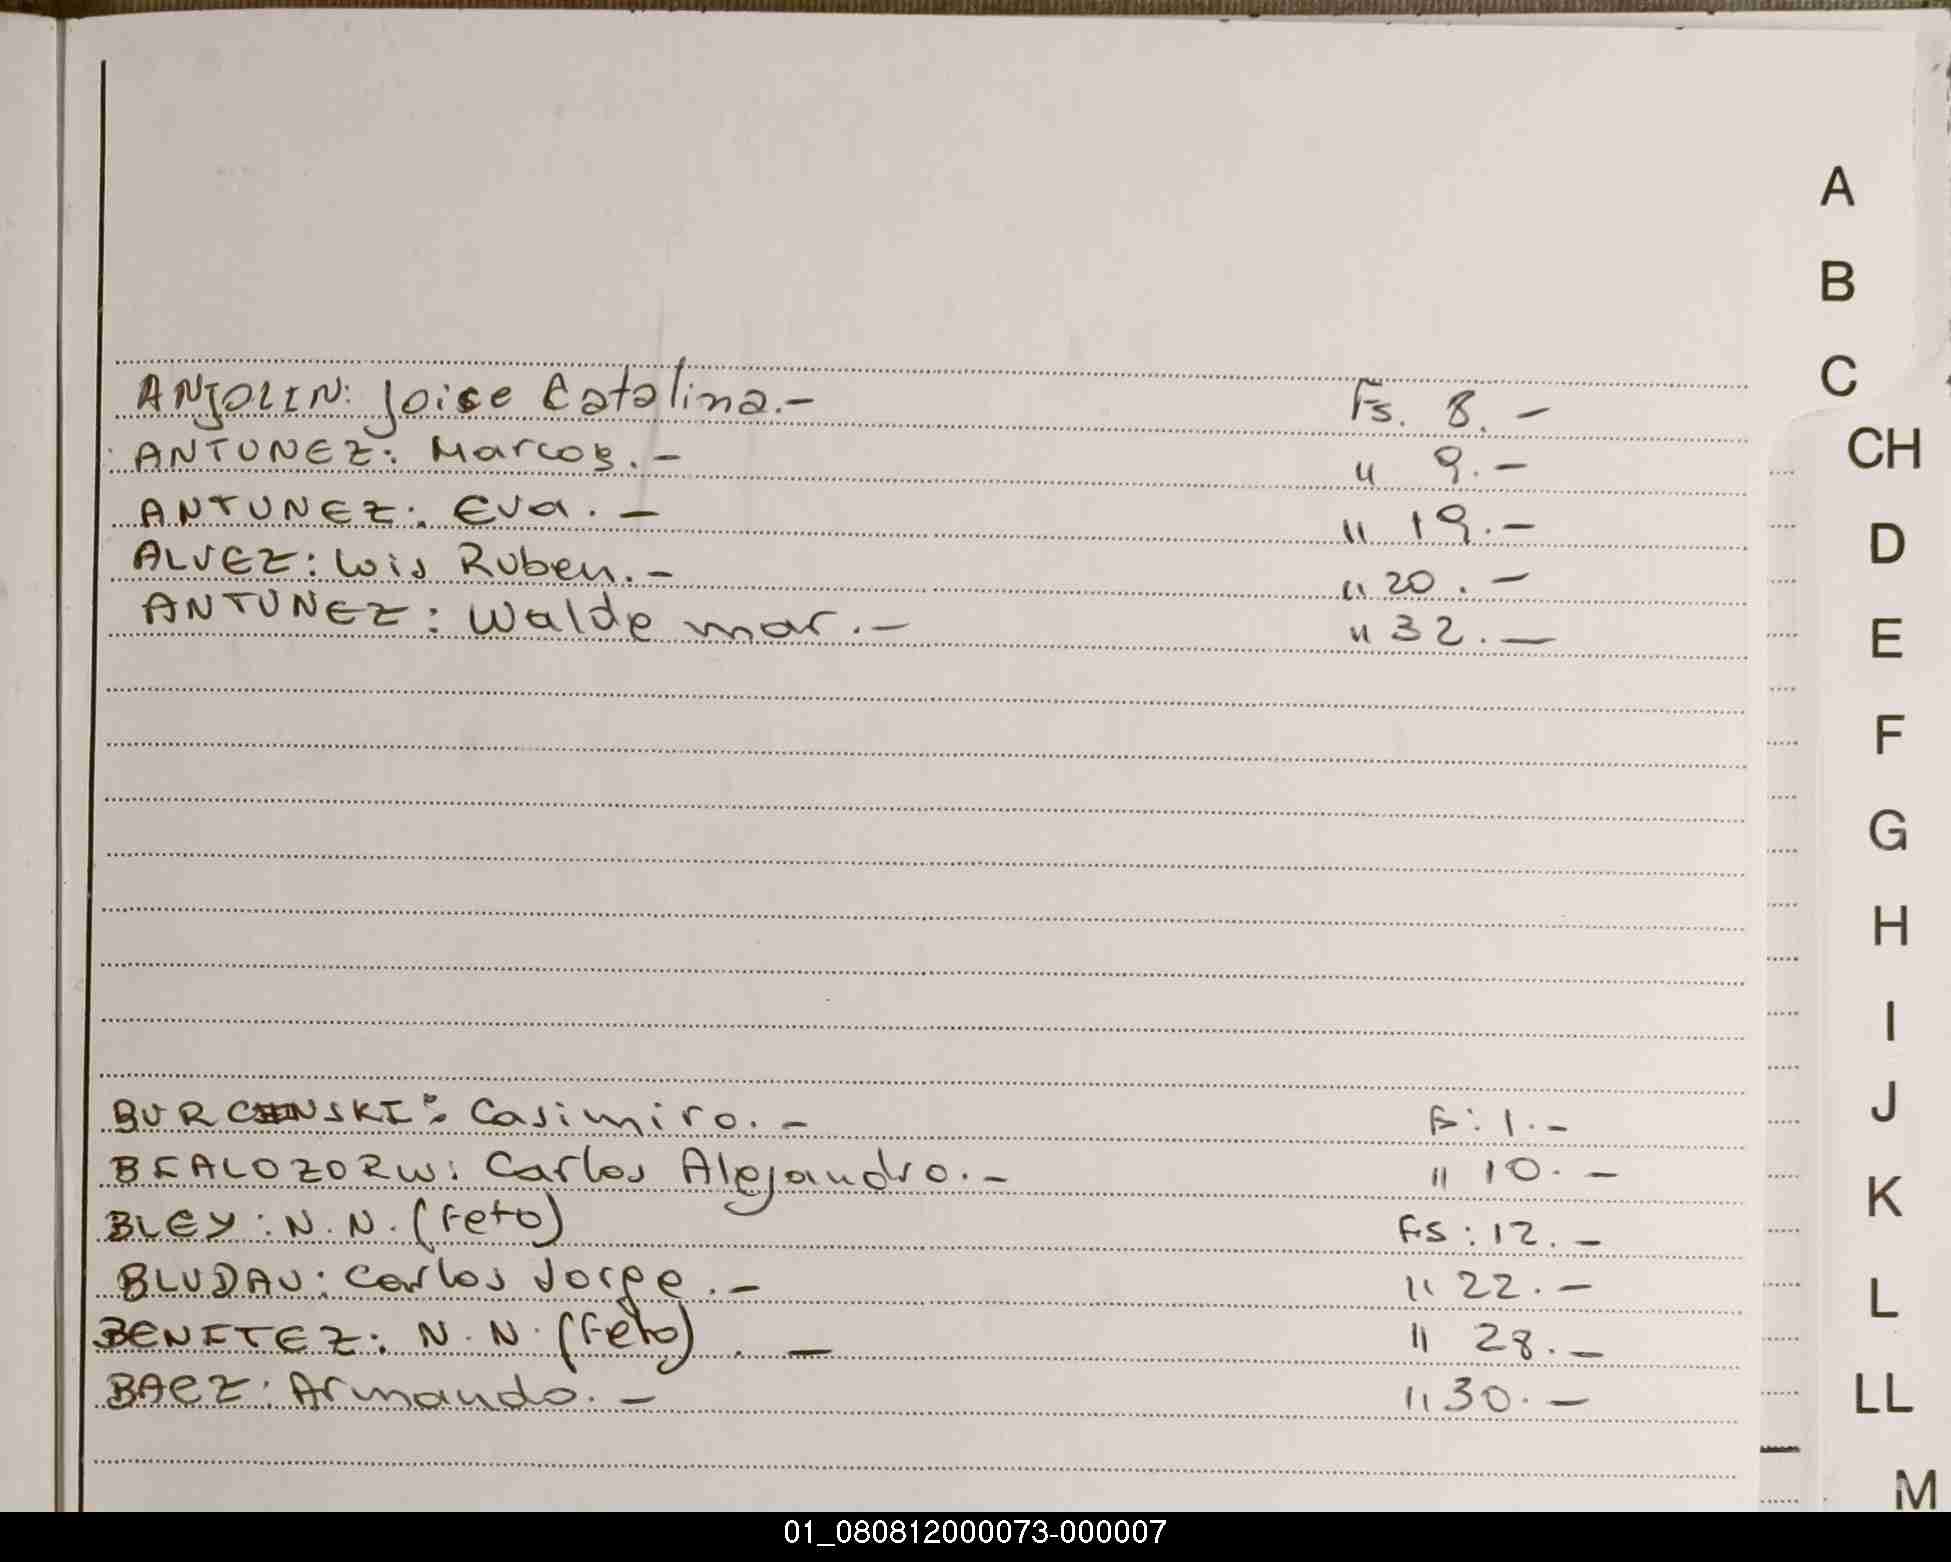 ANJOLIN: Joice Catalina.- Fs. 8.-
ANTUNEZ: Marcos.- " 9.-
ANTUNEZ: Eva.- " 19.-
ALVEZ: Luis Ruben.- " 20.-
ANTUNEZ: Walde mar.- " 32.-
Casimiro.- Fs: 1.-
BIALOZORW: Carlos Alejandro.- " 10.-
BLEY: N.N. (Feto) Fs: 12.-
BLUDAU: Carlos Jorge.- " 22.-
BENITEZ: N.N. (Feto).- " 28.-
BAEZ: Armando.- " 30.-
A
B
C
CH
D
E
F
G
H
I
J
K
L
LL
M
01_080812000073-000007